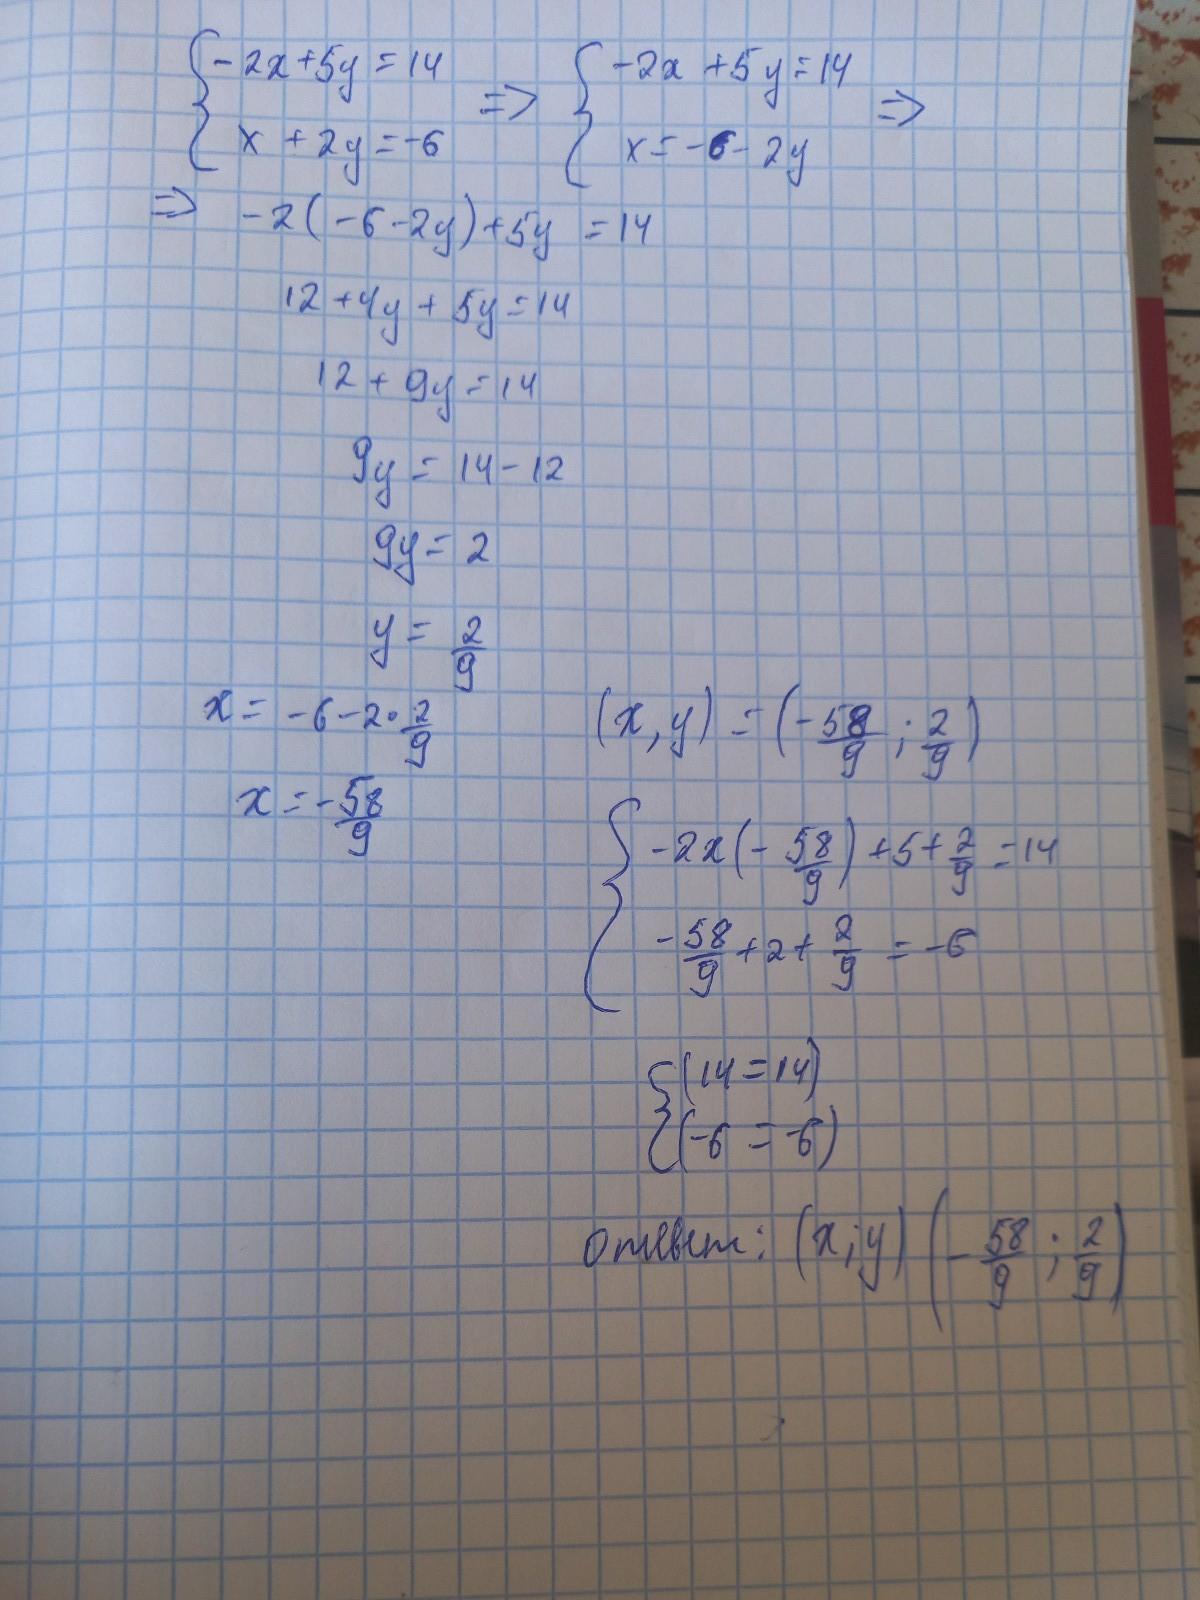 {-2x+5y=14 => {-2x+5y=14 =>
x+2y=-6 x=-6-2y
=> -2(-6-2y)+5y=14
12+4y+5y=14
12+9y=14
9y=14-12
9y=2
y=2/9
x=-6-2·2/9 (x,y)=(-58/9;2/9)
x=-58/9
{-2x(-58/9)+5+2/9=14
-58/9+2+2/9=-6
{(14=14)
(-6=-6)
ответ: (x;y) (-58/9;2/9)